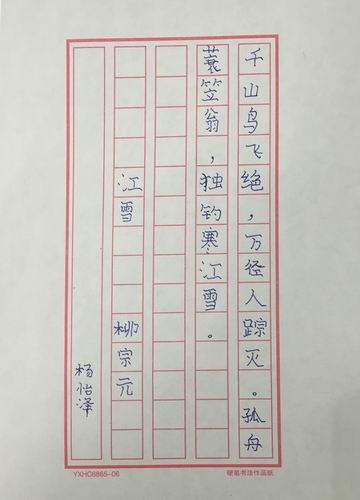 千山鸟飞绝，万径人踪灭。孤舟
蓑笠翁，独钓寒江雪。
江雪 柳宗元
杨怡泽
YXHC6865-06 硬笔书法作品纸